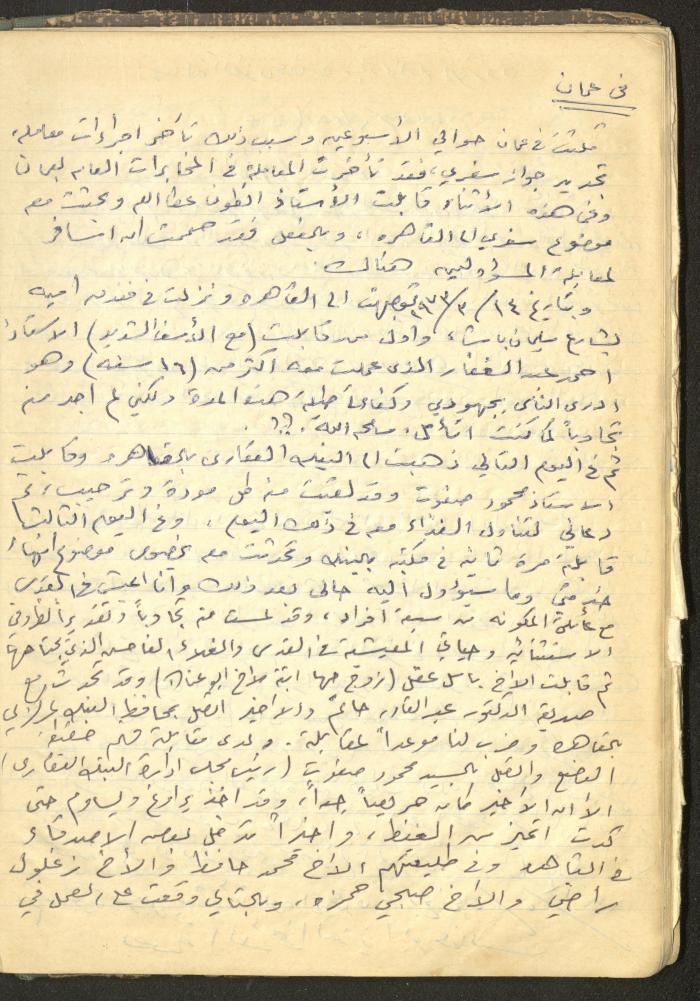 في عمان
مكثت في عمان حوالي الأسبوعين وسبب ذلك تأخر اجراءات معاملة
تجديد جواز سفري، فقد تأخرت المعاملة في المخابرات العامه بعمان
وفي هذه الأثناء قابلت الأستاذ انطون عطاالله وبحثت معه
موضوع سفري الى القاهره، وبالفعل فقد صممت ان اسافر
لمقابلة المسؤولين هناك.
وبتاريخ ١٤/٣/٩٧٣ توجهت الى القاهره ونزلت في فندق امية
بشارع سليمان باشا، واول من قابلت (مع الأسف الشديد) الاستاذ
احمد عبد الغفار الذي عملت معه اكثر من (١٦ سنه) وهو
ادرى الناس بجهودي وكفاءتي طيلة هذه المدة ولكني لم اجد منه
تجاوباً كما كنت اتأمل، سامحه الله.؟؟.
ثم في اليوم التالي ذهبت الى البنك العقاري بالقاهره وقابلت
الاستاذ محمود صفوت وقد لقيت منه كل مودة وترحيب، ثم
دعاني لتناول الغذاء معه في ذلك اليوم، وفي اليوم الثالث
قابلته مرة ثانيه في مكتبه بالبنك وتحدثت معه بخصوص موضوع انهاء
خدمتي وما سيؤول اليه حالي بعد ذلك وانا اعيش في القدس
مع عائلتي المكونه من سبعة افراد، وقد لمست منه تجاوباً وتقديراً لظروفي
الاستثنائيه وحياتي المعيشية في القدس والغلاء الفاحش الذي يجتاحها
ثم قابلت الأخ باسل عقل (زوج مها ابنة صلاح ابو عناب) وقد تحدث مع
صديقه الدكتور عبد القادر حاتم والاخير اتصل بمحافظ البنك المركزي
بالقاهره وضرب لنا موعداً لمقابلته. ولدى مقابلته تفهم حقيقة
الوضع واتصل بالسيد محمود صفوت (رئيس مجلس ادارة البنك العقاري)
الا ان الأخير كان حريصاً جداً، وقد اخذ يراوغ ويساوم حتى
كدت اتميز من الغيظ، واخيراً تدخل بعض الاصدقاء
في القاهره وفي طليعتهم الأخ محمد حافظ والأخ زغلول
راضي والاخ صبحي حمزه، وبالتالي وقعت على العمل في